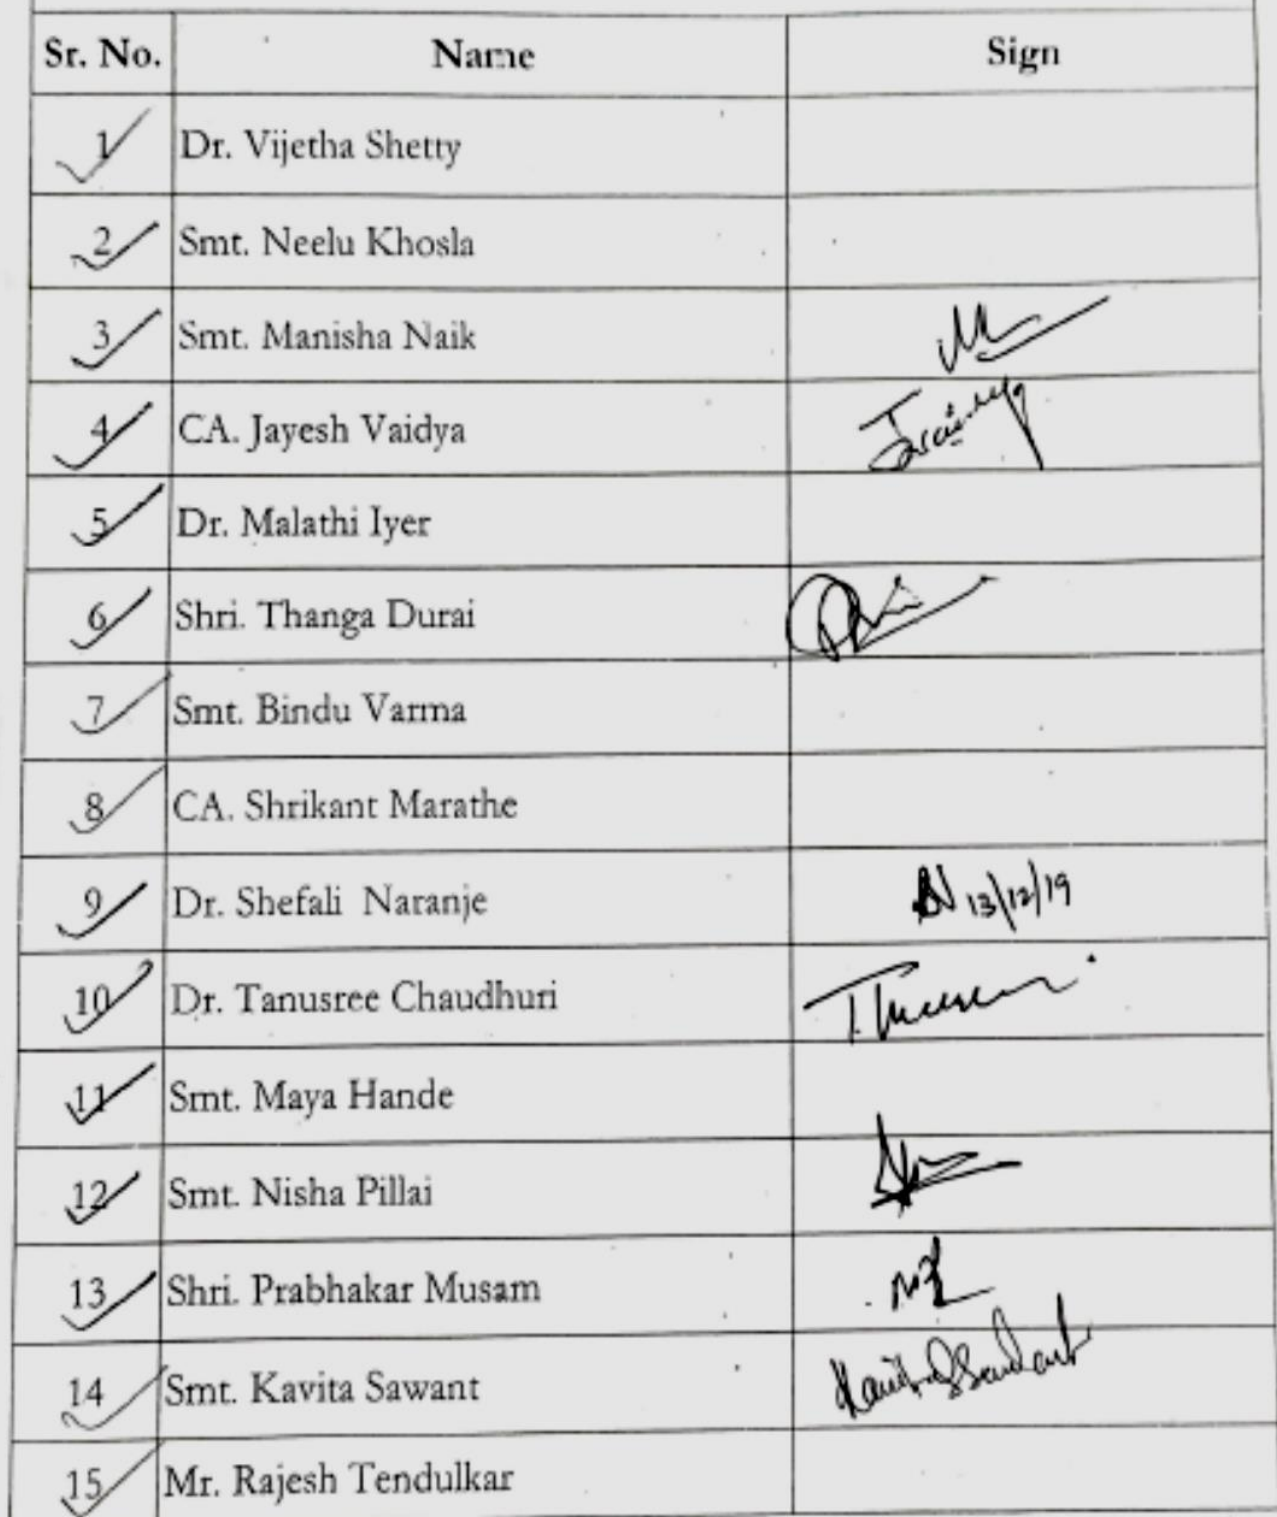 Sr. No. Name Sign
1 Dr. Vijetha Shetty
2 Smt. Neelu Khosla
3 Smt. Manisha Naik
4 CA. Jayesh Vaidya
5 Dr. Malathi Iyer
6 Shri. Thanga Durai
7 Smt. Bindu Varma
8 CA. Shrikant Marathe
9 Dr. Shefali Naranje 13/12/19
10 Dr. Tanusree Chaudhuri
11 Smt. Maya Hande
12 Smt. Nisha Pillai
13 Shri. Prabhakar Musam
14 Smt. Kavita Sawant
15 Mr. Rajesh Tendulkar